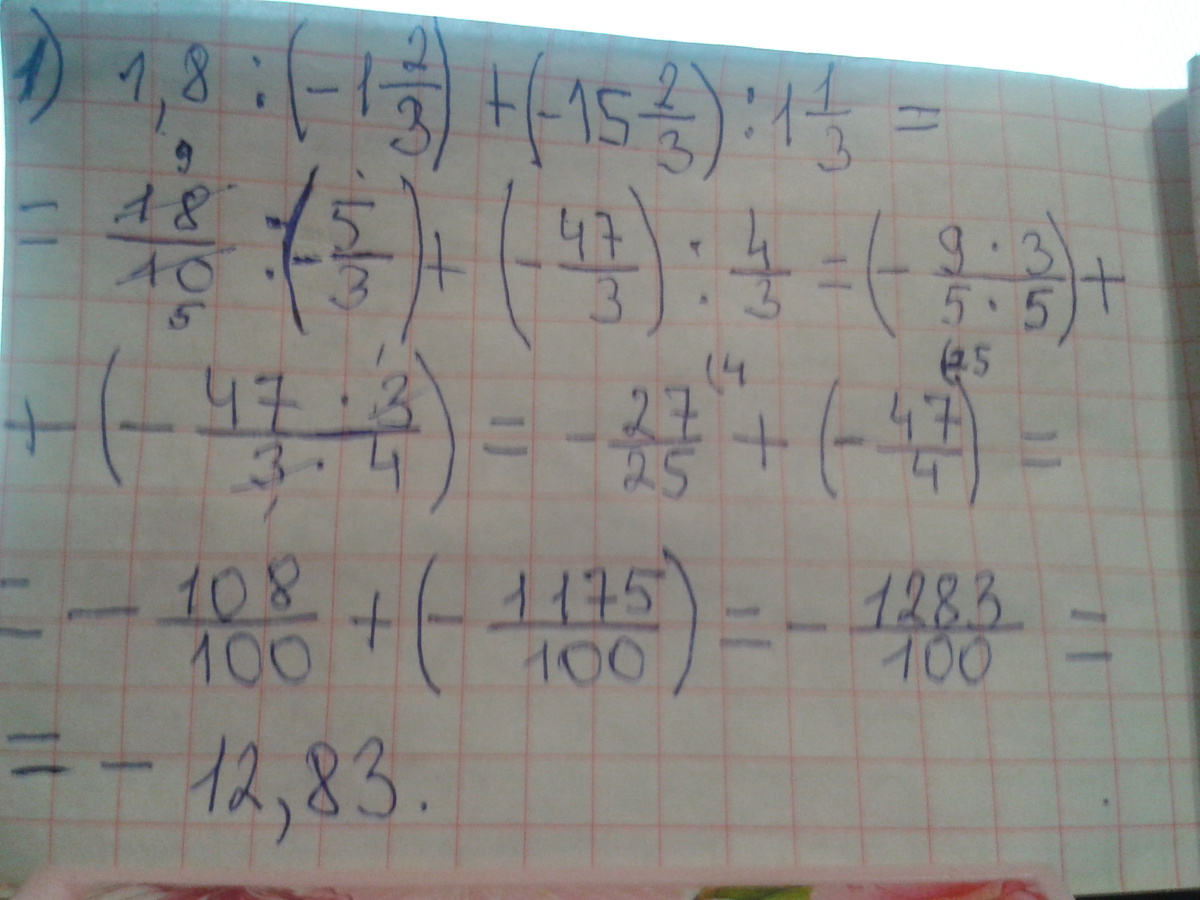 1) 1,8 : (-1 2/3) + (-15 2/3) : 1 1/3 =
= 18/10 : (-5/3) + (-47/3) : 4/3 = (- 9·3/5·5) +
+ (- 47·3/3·4) = - 27/25 + (- 47/4) =
= - 108/100 + (- 1175/100) = - 1283/100 =
= - 12,83.